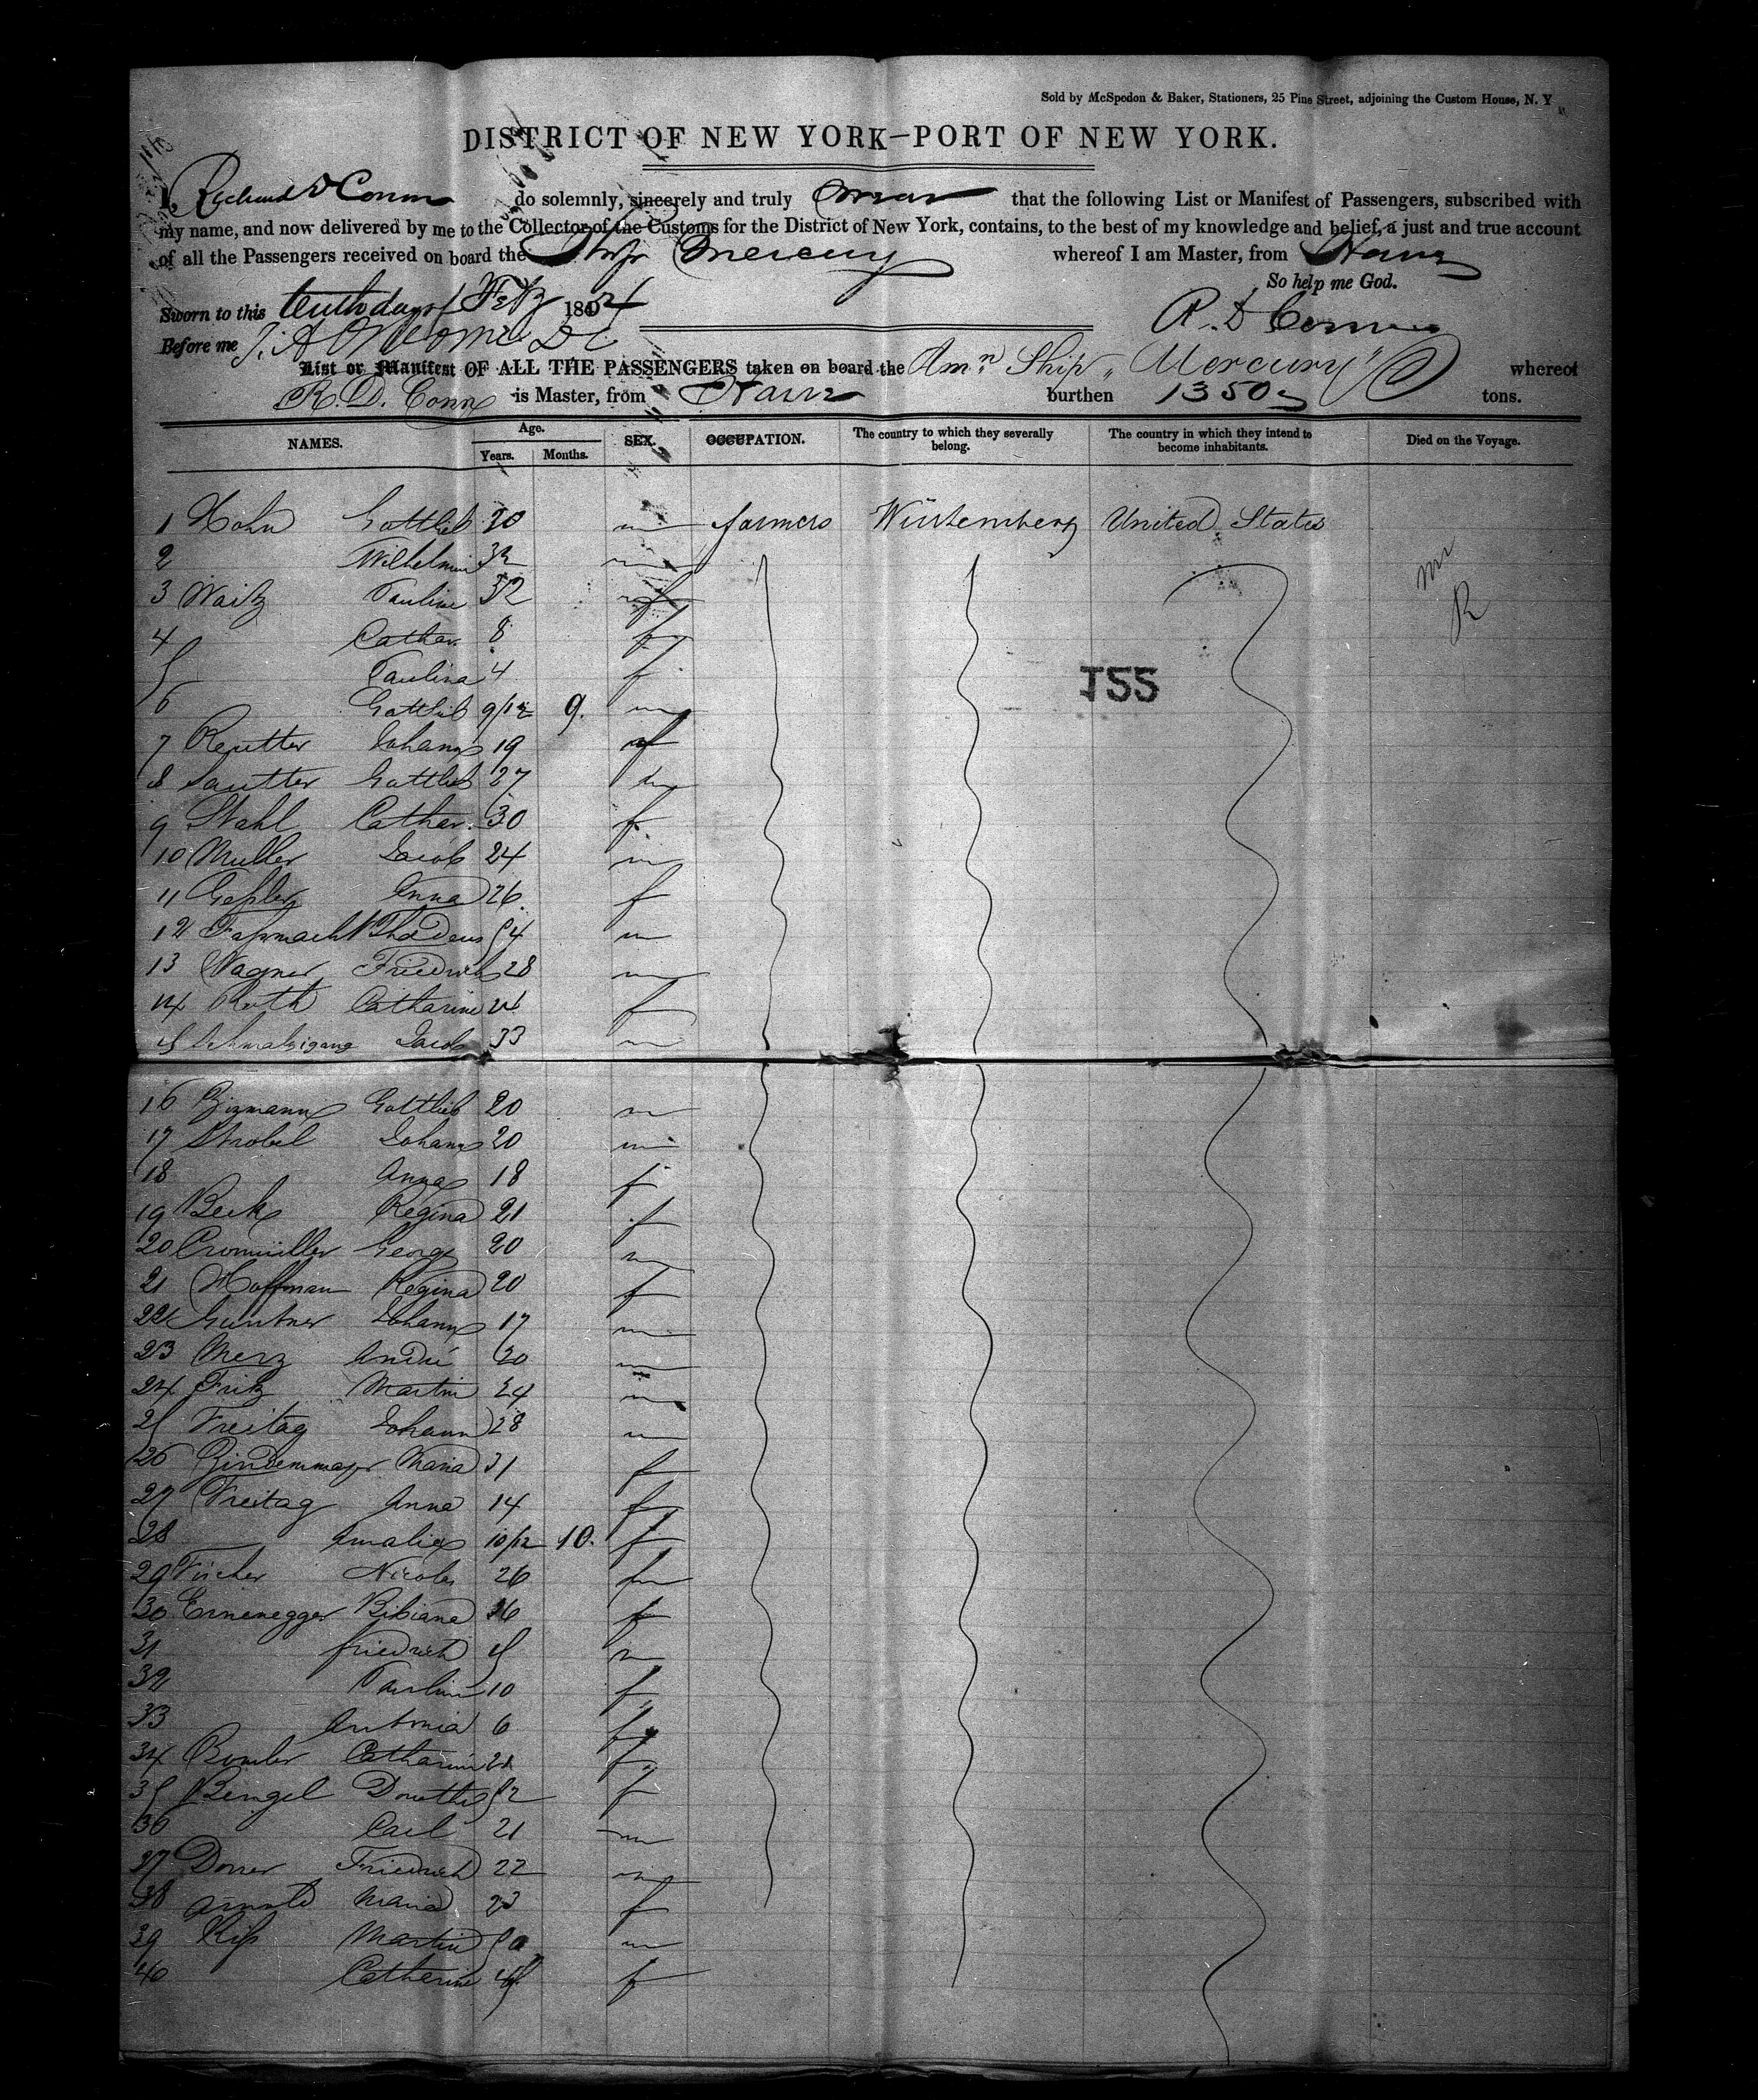 Sold by McSpedon & Baker, Stationers, 25 Pine Street, adjoining the Custom House, N. Y
DISTRICT OF NEW YORK—PORT OF NEW YORK.
I, Richard D Conn do solemnly, sincerely and truly swear that the following List or Manifest of Passengers, subscribed with
my name, and now delivered by me to the Collector of the Customs for the District of New York, contains, to the best of my knowledge and belief, a just and true account
of all the Passengers received on board the Ship Mercury whereof I am Master, from Havre
So help me God.
Sworn to this tenth day of Feb 1854
R. D Conn
Before me
List or Manifest OF ALL THE PASSENGERS taken on board the Amn Ship "Mercury" whereof
R. D. Conn is Master, from Havre burthen 1350 tons.
NAMES. Age. Years. Months. SEX. OCCUPATION. The country to which they severally belong. The country in which they intend to become inhabitants. Died on the Voyage.
1 Hohn Gottlieb 30 m farmers Würtemberg United States
2 Wilhelmin 32 m
3 Waitz Pauline 32 f
4 Cathar. 8 f
5 Paulina 4 f
6 Gottlieb 9/12 9. m
7 Reutter Johann 19
8 Sautter Gottlieb 27 m
9 Stahl Cathar. 30 f
10 Muller Jacob 24 m
11 Geßler Anna 26 f
12 Faßnacht Thadeus 54 m
13 Wagner Friedrich 28 m
14 Roth Catharine 26 f
15 Jacob 33 m
16 Gottlieb 20 m
17 Strobel Johann 20 m
18 Anna 18 f
19 Beck Regina 21 f
20 Cromüller George 20 m
21 Hoffman Regina 20 f
22 Guntner Johann 17 m
23 Merz André 20 m
24 Fritz Martin 24 m
25 Freitag Johann 28 m
26 Maria 31 f
27 Freitag Anna 14 f
28 Amalie 10/12 10. f
29 Fischer Nicolas 26 m
30 Ermenegger Bibiana 36 f
31 Friedrich m
32 Pauline 10 f
33 Antonia 6 f
34 Catharine 21 f
35 Bengel Dorothe 52 f
36 Carl 21 m
37 Dorrer Friedrich 22 m
38 Arnold Maria 23 f
39 Martin 50 m
40 Catherine f
155